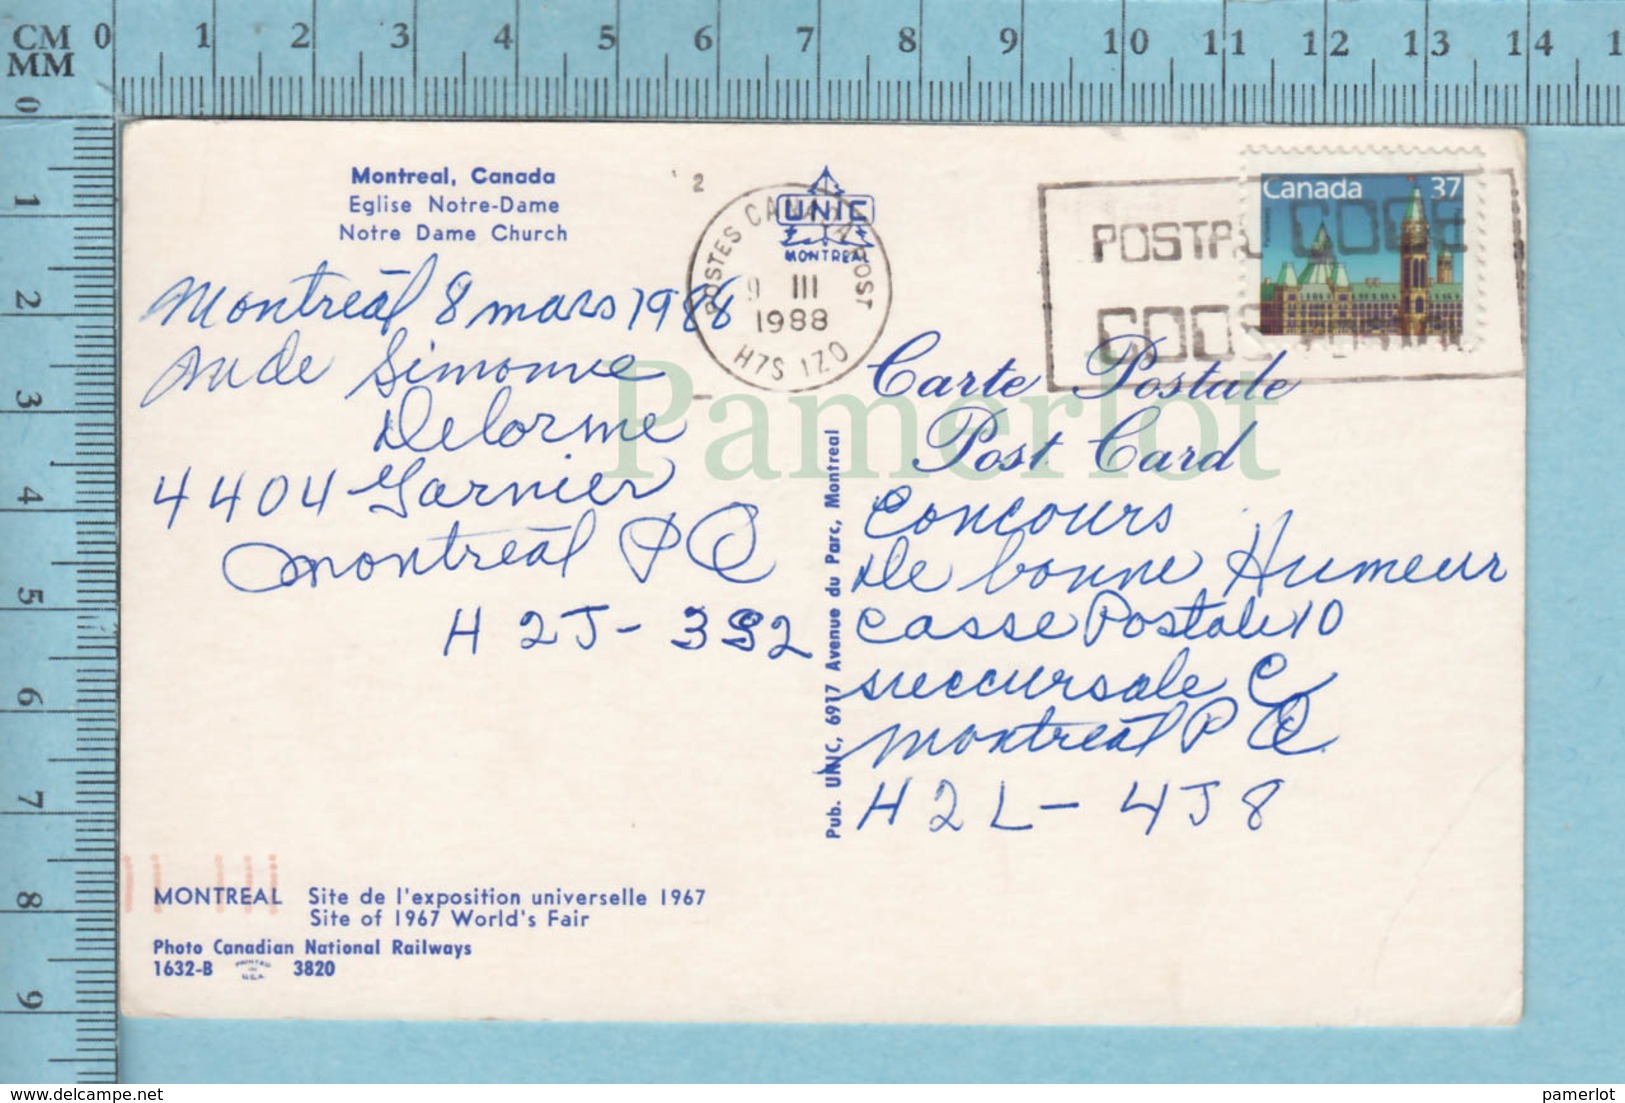 CM 0 1 2 3 4 5 6 7 8 9 10 11 12 13 14 1
MM
0 1 2 3 4 5 6 7 8 9
Montreal, Canada
Eglise Notre-Dame
Notre Dame Church
2
POSTES CANADA POST
9 III
1988
H7S 1Z0
UNIC
MONTREAL
Canada 37
POSTAL CODE
CODE POSTAL
Montreál 8 mars 1988
Simonne
Delorme
4404 Garnier
Montreál P Q
H2J-3S2
Carte Postale
Post Card
Concours
De bonne Humeur
Casse Postale 10
succursale C
Montreál P Q
H2L-4J8
Pub. UNIC, 6917 Avenue du Parc, Montreal
MONTREAL Site de l'exposition universelle 1967
Site of 1967 World's Fair
Photo Canadian National Railways
1632-B PRINTED IN U.S.A. 3820
Pamerlot
pamerlot